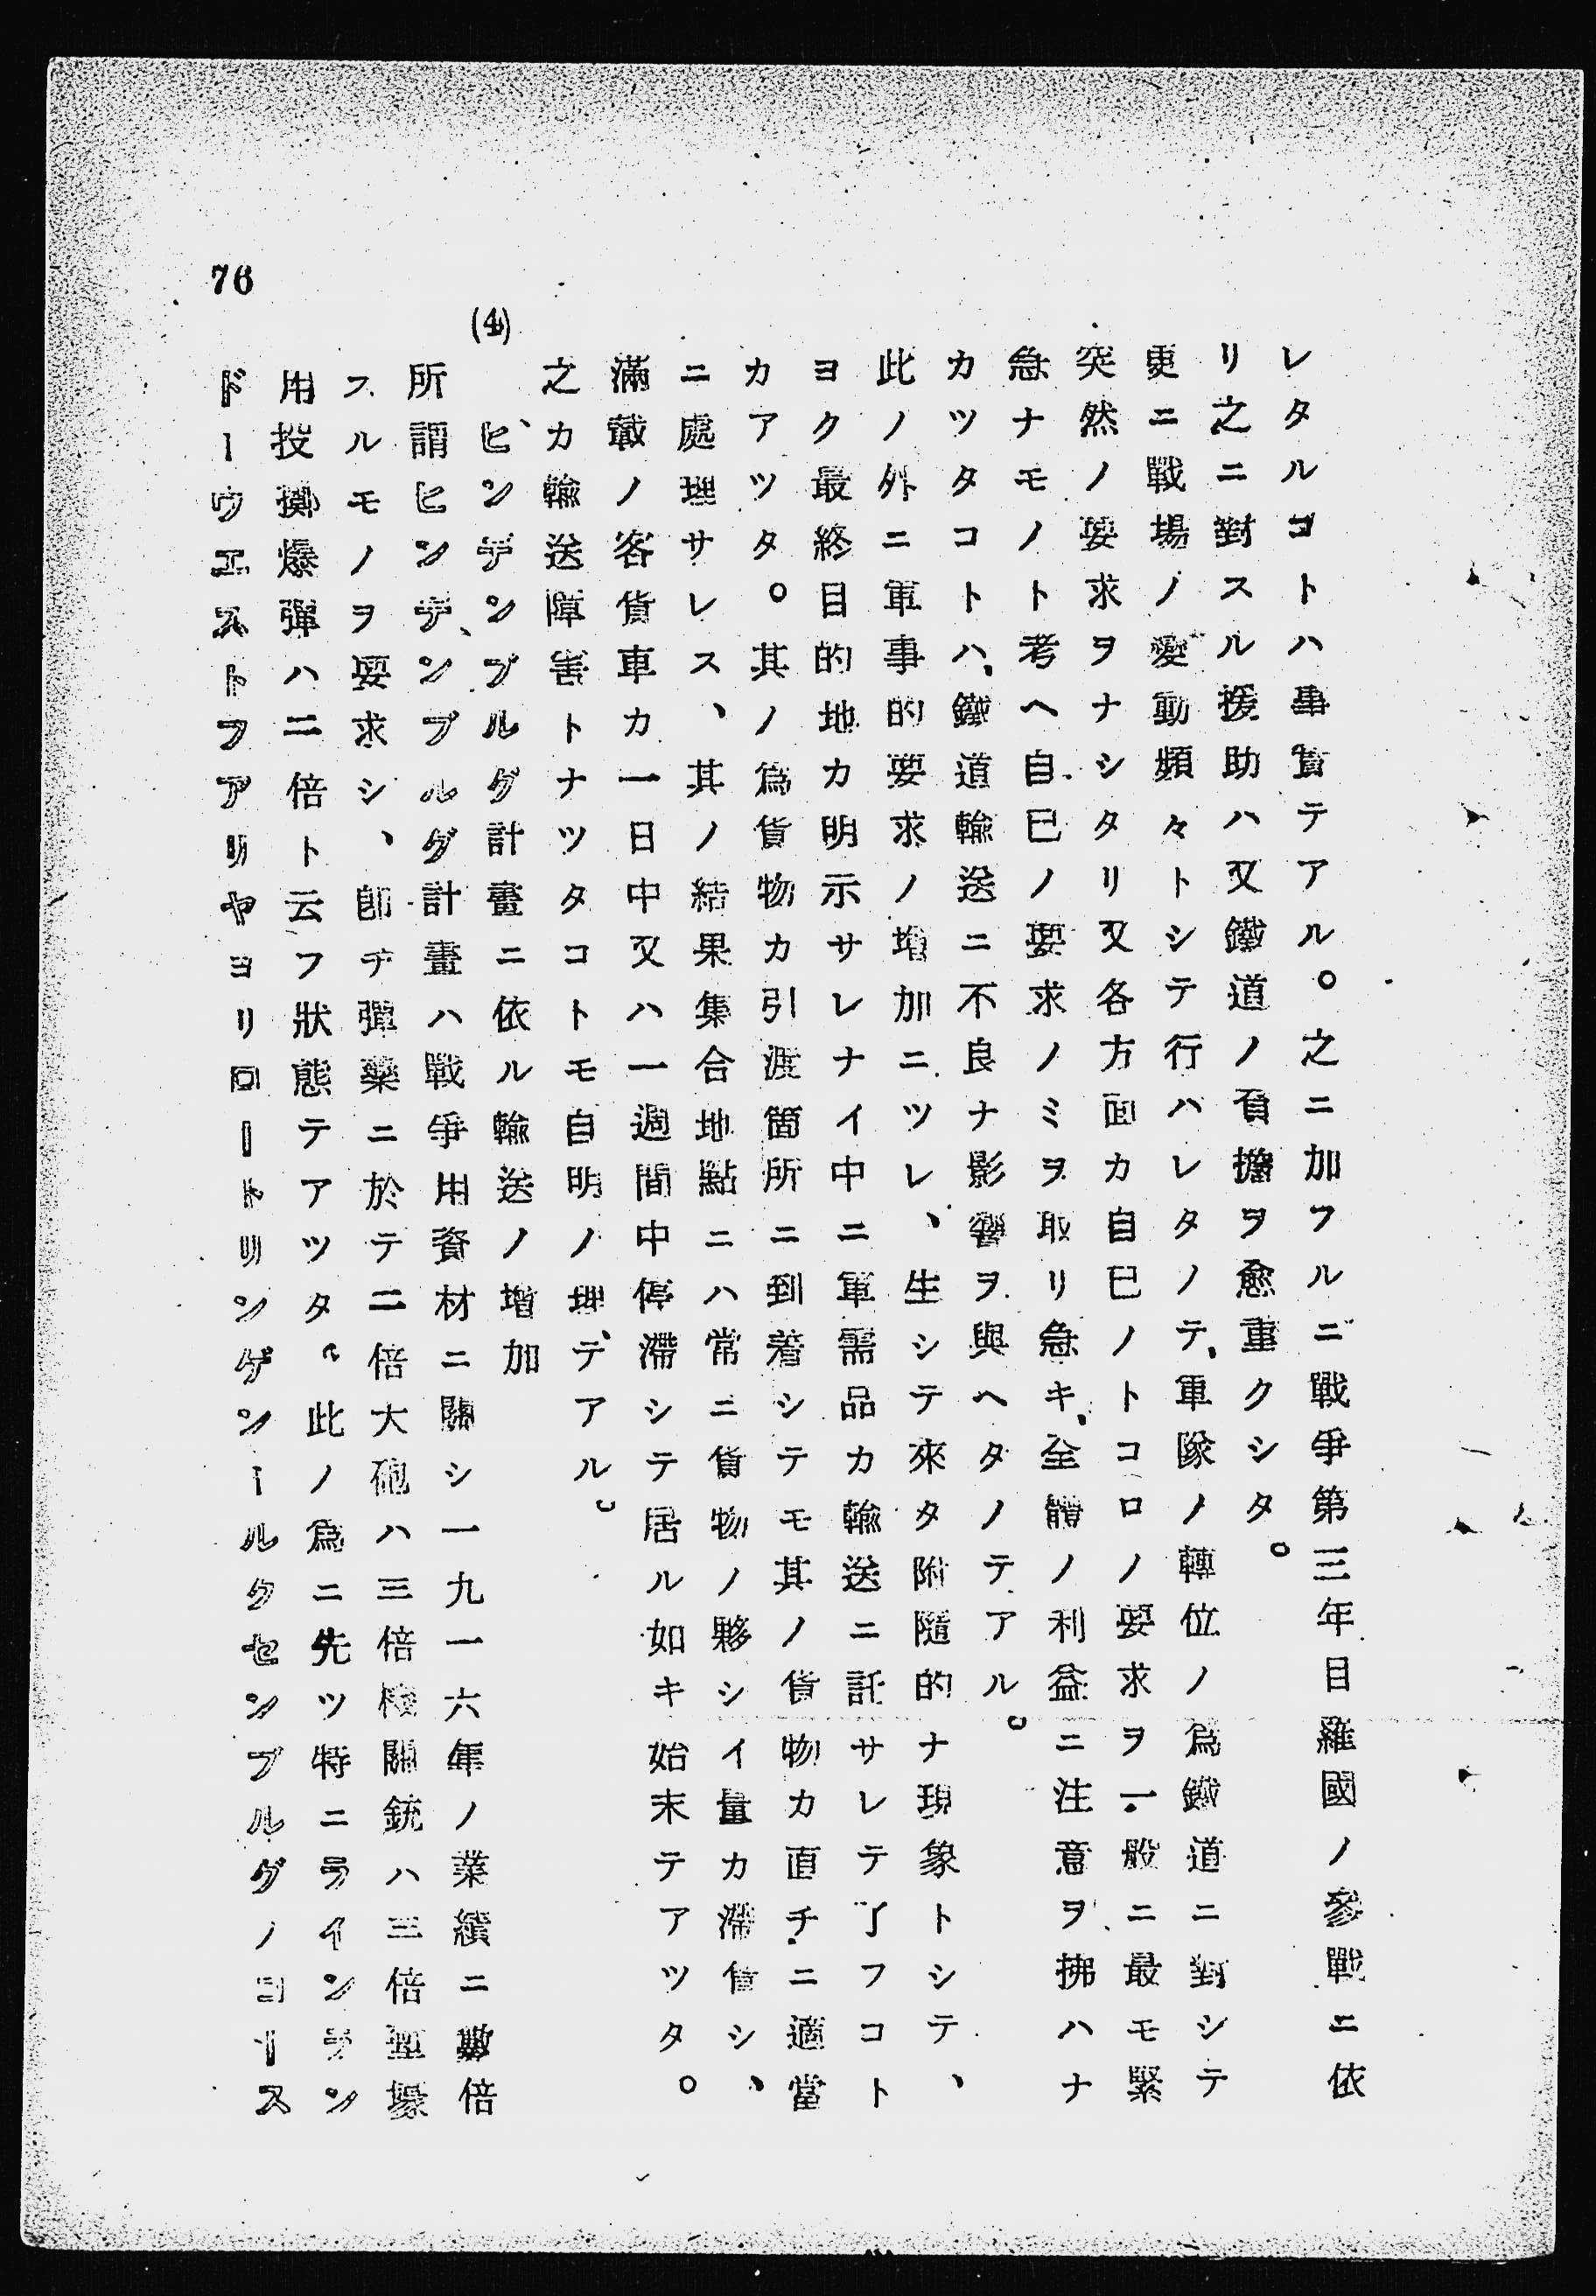 レタルコトハ事實テアル。之ニ加フルニ戰爭第三年目羅國ノ參戰ニ依
リ之ニ對スル援助ハ又鐵道ノ負擔ヲ愈重クシタ。
更ニ戰場ノ變動頻々トシテ行ハレタノテ、軍隊ノ轉位ノ爲鐵道ニ對シテ
突然ノ要求ヲナシタリ又各方面カ自己ノトコロノ要求ヲ一般ニ最モ緊
急ナモノト考ヘ自己ノ要求ノミヲ取リ急キ、全體ノ利益ニ注意ヲ拂ハナ
カツタコトハ、鐵道輸送ニ不良ナ影響ヲ與ヘタノテアル。
此ノ外ニ軍事的要求ノ增加ニツレ、生シテ來タ附隨的ナ現象トシテ、
ヨク最終目的地カ明示サレナイ中ニ軍需品カ輸送ニ託サレテ了フコト
カアツタ。其ノ爲貨物カ引渡箇所ニ到着シテモ其ノ貨物カ直チニ適當
ニ處理サレス、其ノ結果集合地點ニハ常ニ貨物ノ夥シイ量カ滯貨シ、
滿載ノ客貨車カ一日中又ハ一週間中停滯シテ居ル如キ始末テアツタ。
之カ輸送障害トナツタコトモ自明ノ理デアル。
(4) ヒンデンブルグ計畫ニ依ル輸送ノ增加
所謂ヒンデンブルグ計畫ハ戰爭用資材ニ關シ一九一六年ノ業績ニ數倍
スルモノヲ要求シ、卽チ彈藥ニ於テ二倍大砲ハ三倍機關銃ハ三倍塹壕
用投擲爆彈ハ二倍ト云フ狀態テアツタ。此ノ爲ニ先ツ特ニラインラン
ドーウエストフアリヤヨリロートリンゲンールクセンブルグノコース
76